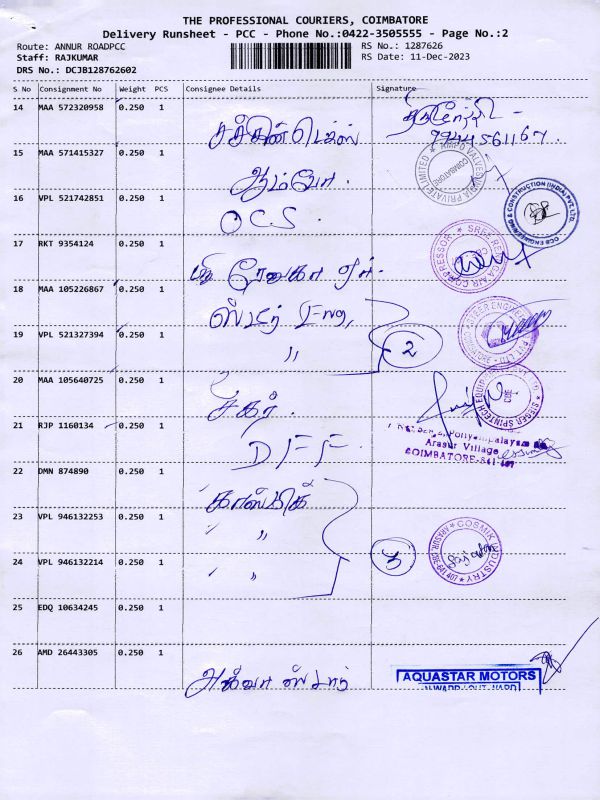 THE PROFESSIONAL COURIERS, COIMBATORE
Delivery Runsheet - PCC - Phone No.:0422-3505555 - Page No.:2
Route: ANNUR ROADPCC
RS No.: 1287626
Staff: RAJKUMAR
RS Date: 11-Dec-2023
DRS No.: DCJB128762602
S No Consignment No Weight PCS Consignee Details Signature
14 MAA 572320958 0.250 1
9944561167.
15 MAA 571415327 0.250 1
ஆம்போ.
16 VPL 521742851 0.250 1
O.C.S
17 RKT 9354124 0.250 1
ஸ்ரீ ரேணுகா ஏர்.
18 MAA 105226867 0.250 1
ஸ்டீர் Eng,
19 VPL 521327394 0.250 1
〃 2
20 MAA 105640725 0.250 1
சீகர்.
21 RJP 1160134 0.250 1
Arasur Village
COIMBATORE-641 407
DFF
22 DMN 874890 0.250 1
காஸ்மிக்
23 VPL 946132253 0.250 1
〃 〃
24 VPL 946132214 0.250 1
〃 〃 3
COSMIK INDUSTRY
25 EDQ 10634245 0.250 1
26 AMD 26443305 0.250 1
அக்வா ஸ்டார்
AQUASTAR MOTORS